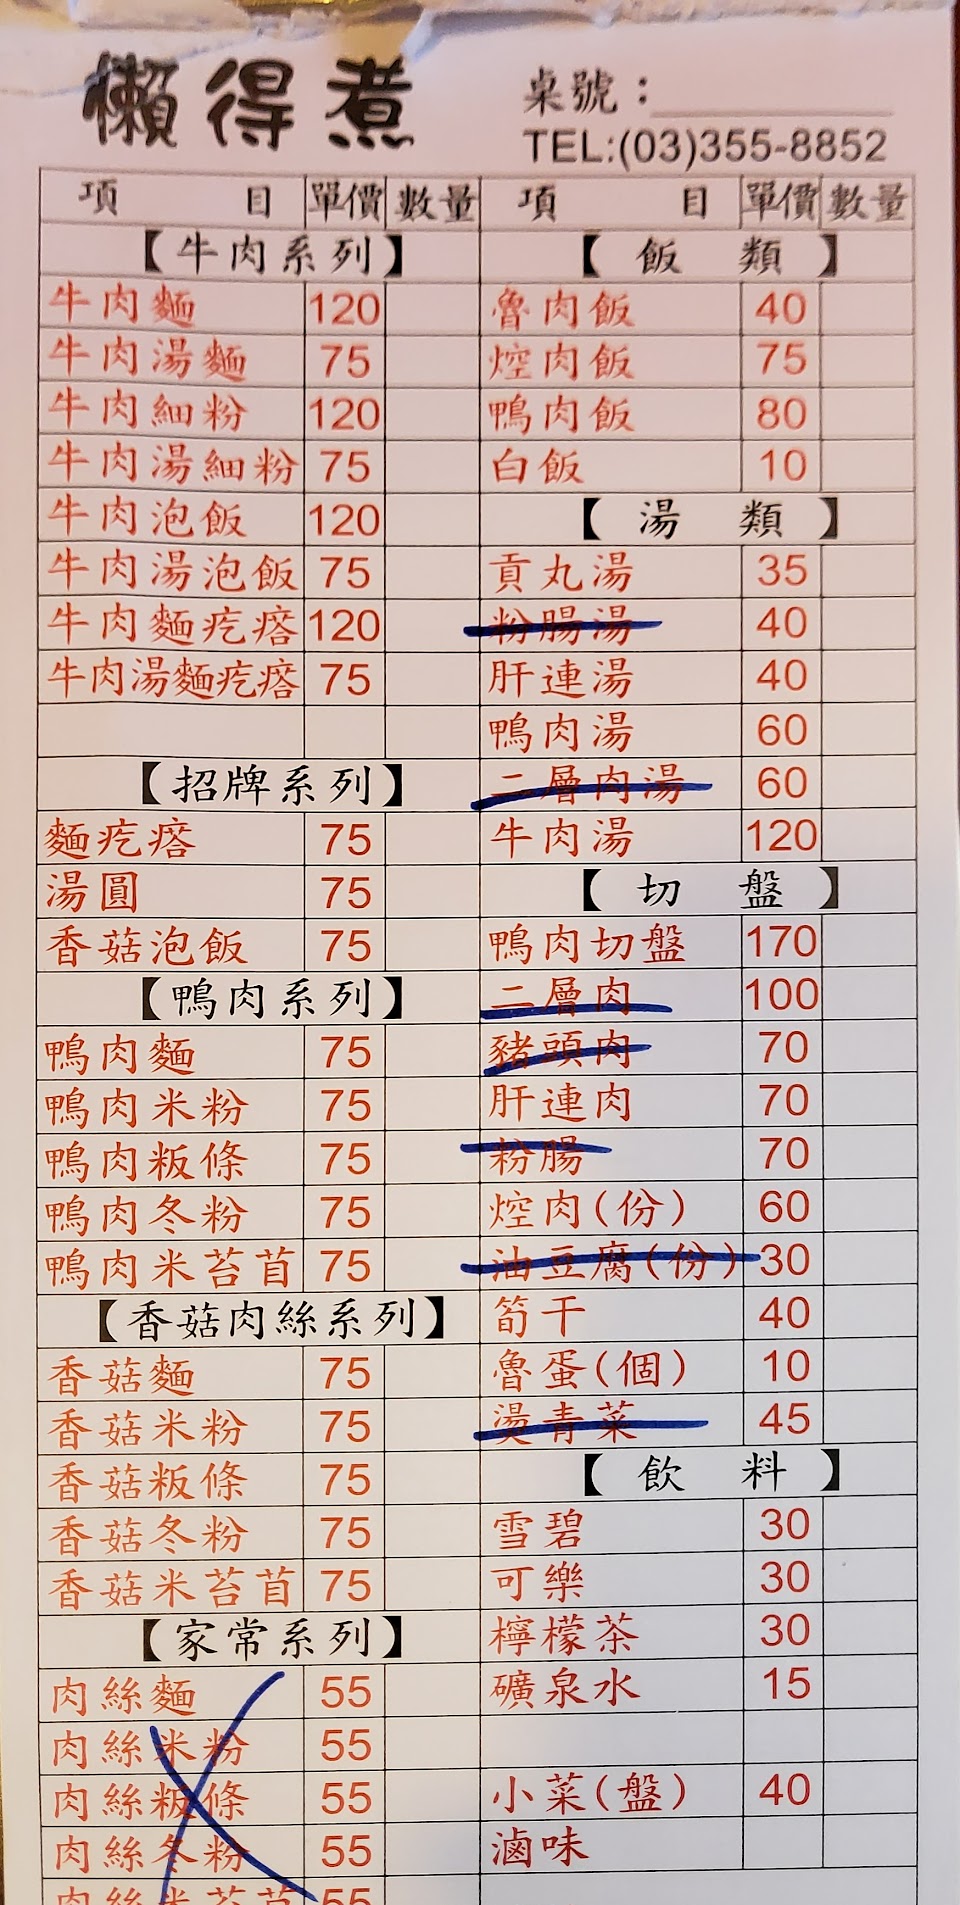 懶得煮
桌號：
TEL:(03)355-8852
項目 單價 數量
【牛肉系列】
牛肉麵 120
牛肉湯麵 75
牛肉細粉 120
牛肉湯細粉 75
牛肉泡飯 120
牛肉湯泡飯 75
牛肉麵疙瘩 120
牛肉湯麵疙瘩 75
【招牌系列】
麵疙瘩 75
湯圓 75
香菇泡飯 75
【鴨肉系列】
鴨肉麵 75
鴨肉米粉 75
鴨肉粄條 75
鴨肉冬粉 75
鴨肉米苔苜 75
【香菇肉絲系列】
香菇麵 75
香菇米粉 75
香菇粄條 75
香菇冬粉 75
香菇米苔苜 75
【家常系列】
肉絲麵 55
肉絲米粉 55
肉絲粄條 55
肉絲冬粉 55
肉絲米苔苜 55
項目 單價 數量
【飯類】
魯肉飯 40
焢肉飯 75
鴨肉飯 80
白飯 10
【湯類】
貢丸湯 35
粉腸湯 40
肝連湯 40
鴨肉湯 60
二層肉湯 60
牛肉湯 120
【切盤】
鴨肉切盤 170
二層肉 100
豬頭肉 70
肝連肉 70
粉腸 70
焢肉(份) 60
油豆腐(份) 30
筍干 40
魯蛋(個) 10
燙青菜 45
【飲料】
雪碧 30
可樂 30
檸檬茶 30
礦泉水 15
小菜(盤) 40
滷味